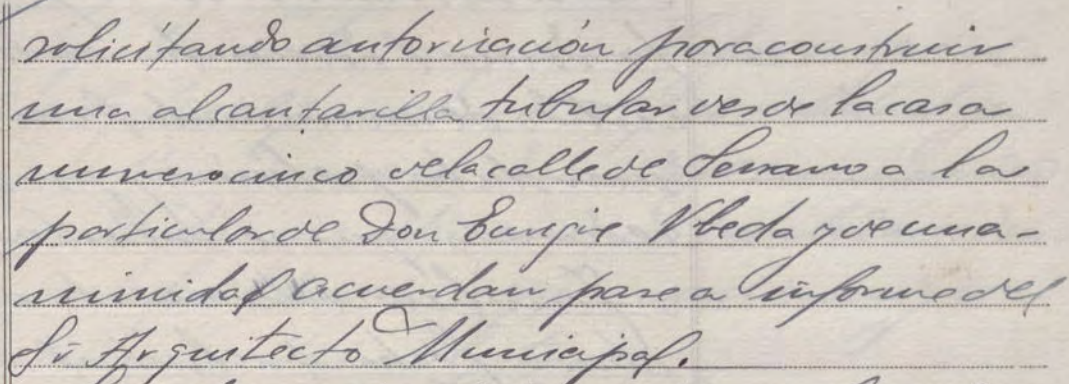 solicitando autorización para construir
una alcantarilla tubular desde la casa
numero cinco de la calle de Serrano a la
particular de Don Ubeda y de una-
nimidad acuerdan pase a informe del
Sr Arquitecto Municipal.